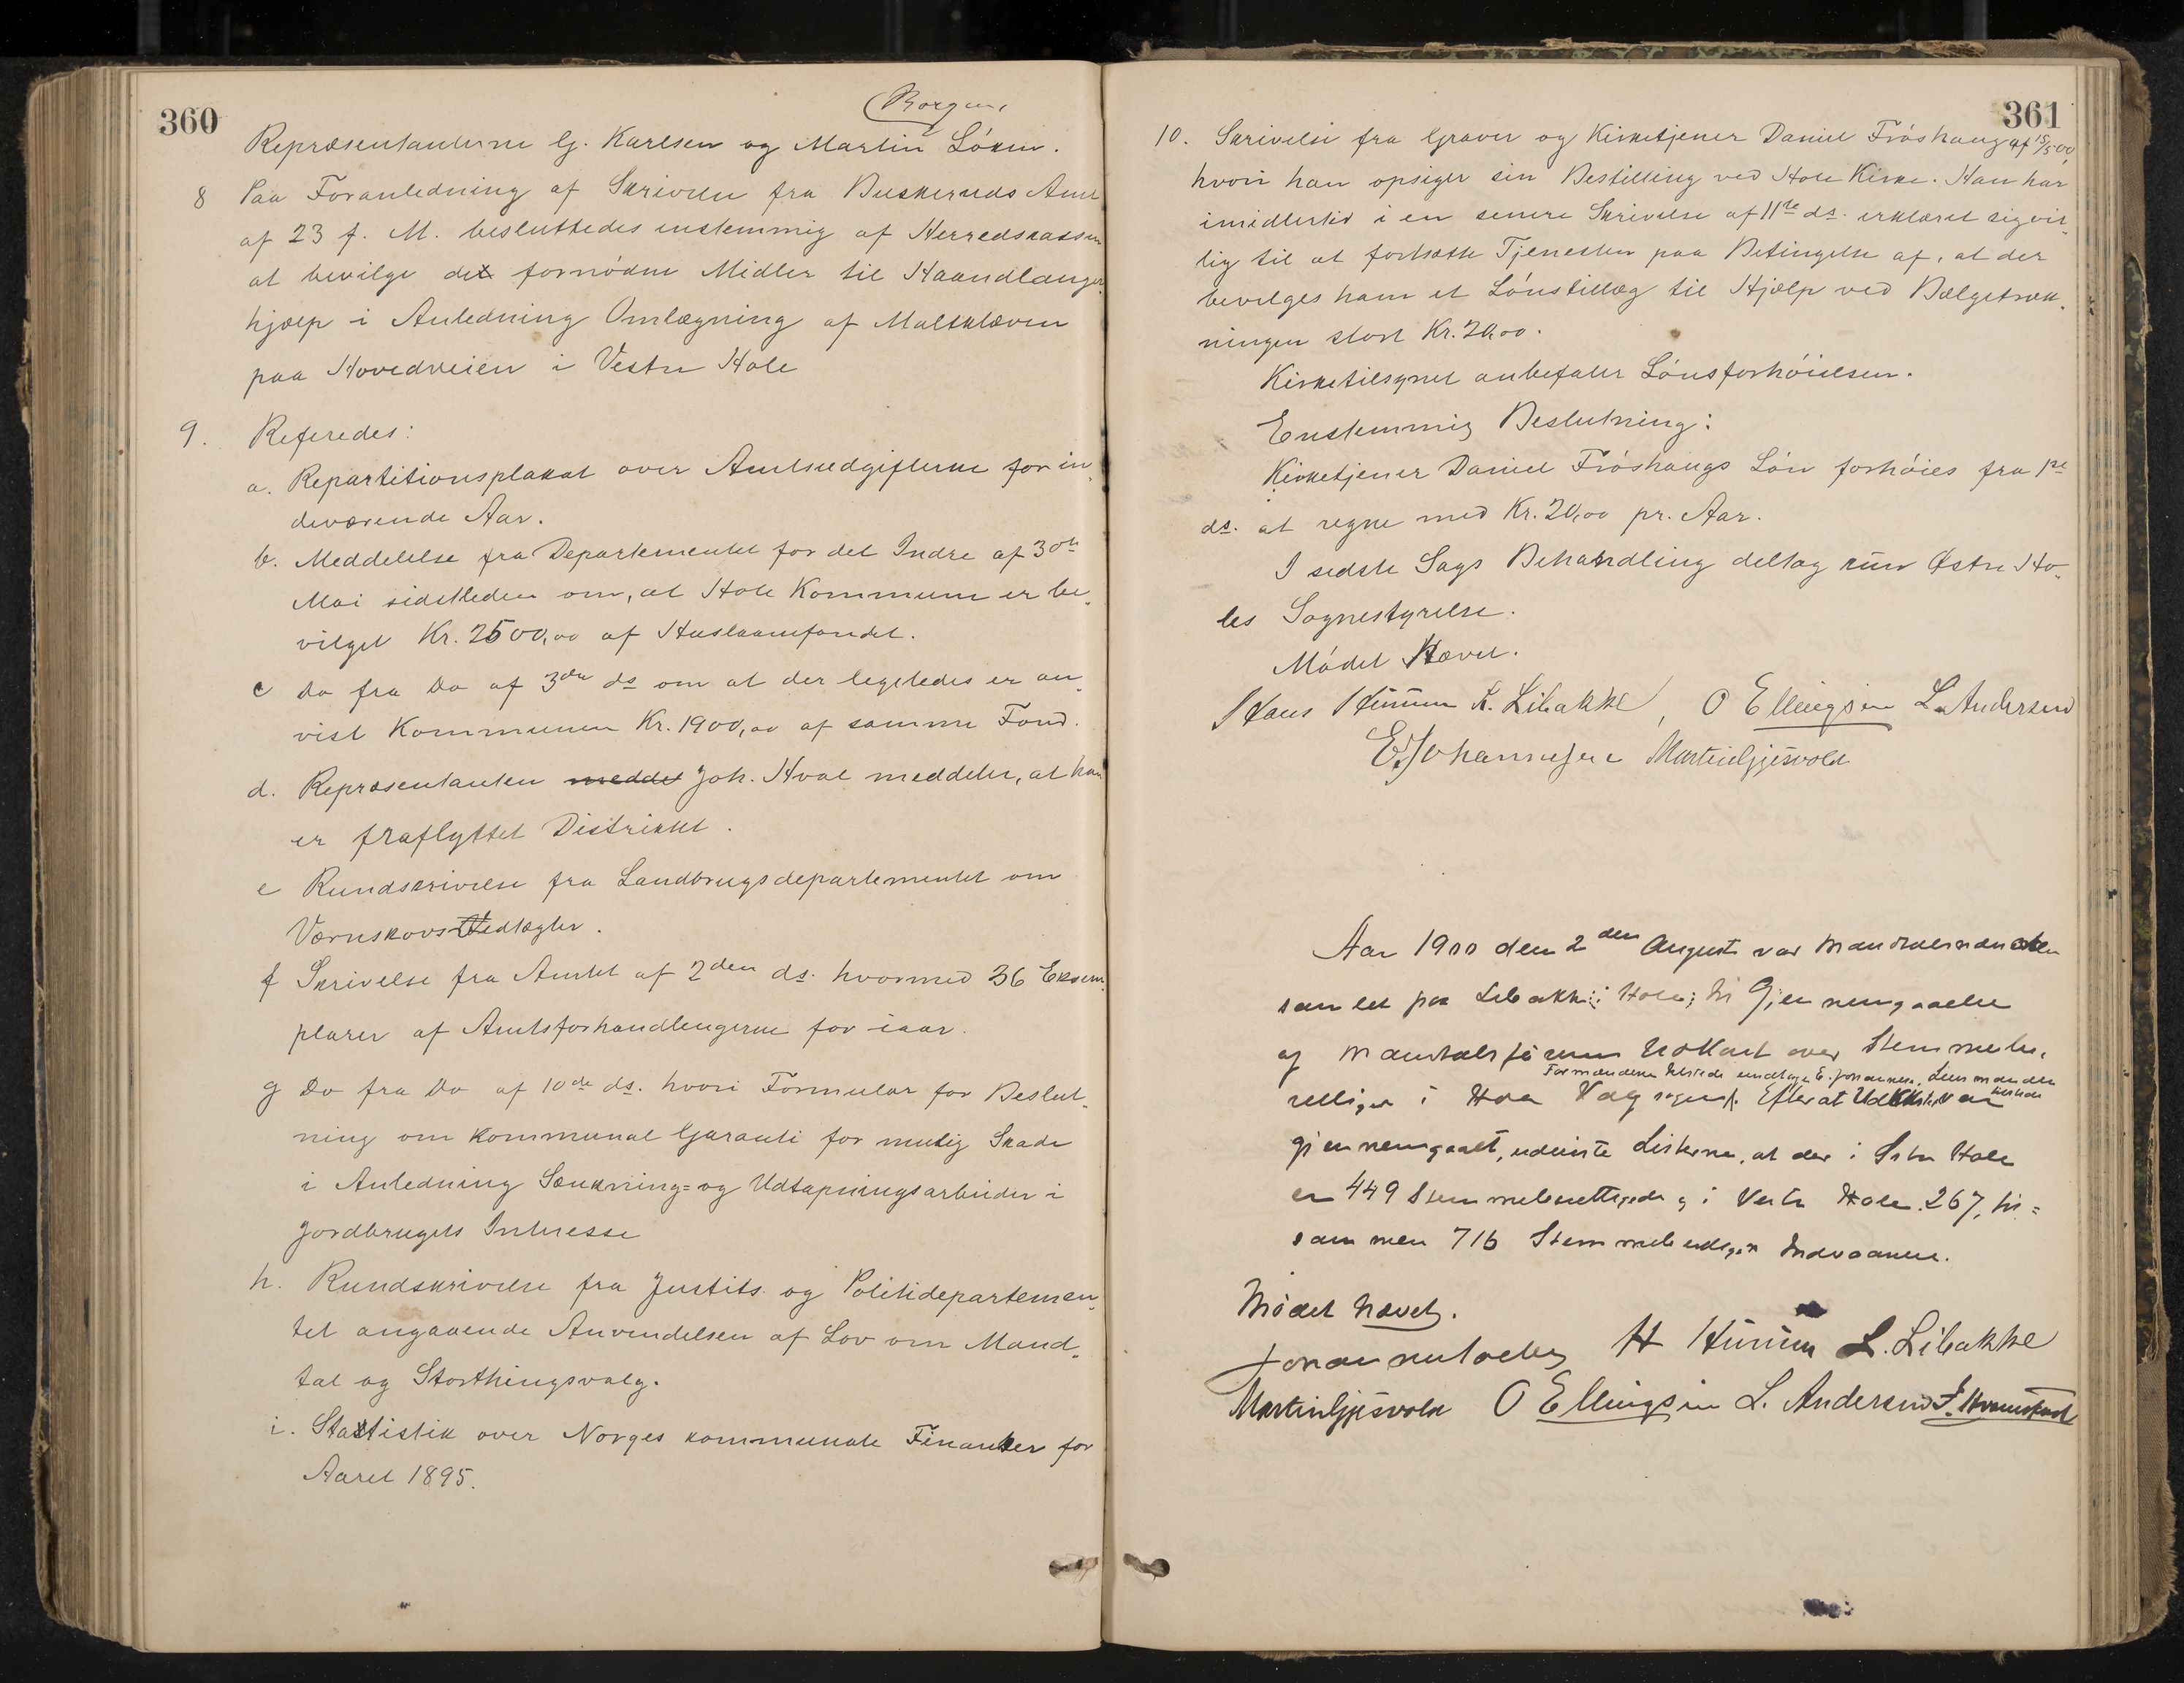 360
(Borgen)
Repræsentanterne G. Karlsen og Martin Løken.
8 Paa Foranledning af Skrivelse fra Buskeruds Amt
af 23 f. M. besluttedes enstemmig af Herredskassen
at bevilge de fornødne Midler til Haandlanger
hjælp i Anledning Omlægning af
paa Hovedveien i Vestre Hole
9. Referedes:
a. Repartitionsplakat over Amtsudgifterne for in„
deværende Aar.
b. Meddelelse fra Departementet for det Indre af 30te
Mai sidstleden om, at Hole Kommune er be„
vilget Kr. 2500,00 af Huslaanefondet.
c Do fra Do af 3die ds om at der ligeledes er an„
vist Kommunen Kr. 1900,00 af samme Fond.
d. Repræsentanten meddel Joh. Hval meddeler, at han
er fraflyttet Distriktet.
e Rundskrivelse fra Landbrugsdepartementet om
Værnskovs Vedtægter.
f Skrivelse fra Amtet af 2den ds. hvormed 36 Eksem„
plarer af Amtsforhandlingerne for iaar.
g Do fra Do af 10de ds. hvori Formular for Beslut„
ning om kommunal Garanti for mulig Skade
i Anledning Sænkning= og Udtapningsarbeider i
Jordbrugets Interesse
h. Rundskrivelse fra Justits og Politidepartemen„
tet angaaende Anvendelsen af Lov om Mand„
tal og Storthingsvalg.
i. Statistik over Norges kommunale Finanser for
Aaret 1895.
361
10. Skrivelse fra Graver og Kirketjener Daniel Frøshaug af 15/5 00,
hvori han opsiger sin Bestilling ved Hole Kirke. Han har
imidlertid i en senere Skrivelse af 11te ds. erklæret sig vil„
lig til at fortsætte Tjenesten paa Betingelse af, at der
bevilges ham et Lønstillæg til Hjælp ved Bælgetræk„
ningen stort Kr. 20,00.
Kirketilsynet anbefaler Lønsforhøielsen.
Enstemmig Beslutning:
Kirketjener Daniel Frøshaugs Løn forhøies fra 1ste
ds. at regne med Kr. 20,00 pr. Aar.
I sidste Sags Behandling deltog kun Østre Ho„
les Sognestyrelse.
Mødet Hævet.
Hans Hurum L. Libakke, O Ellingsen L. Andersen
E. Johannesen Martin Gjesvold
Aar 1900 den 2den August var
samlet paa Libakke i Hole, til Gjennemgaaelse
af Udkast over Stemmebe„
Formanden E. Johannesen, Lensmanden
rettigede i Hole Efterat Udkastet var
gjennemgaaet, udviste Listerne, at der i Østre Hole
er 449 Stemmeberettigede og i Vestre Hole 267, til=
sammen 716 Stemmeberettigede Indvaanere.
Mødet hævet.
H Hurum L. Libakke
Martin Gjesvold O Ellingsen L. Andersen